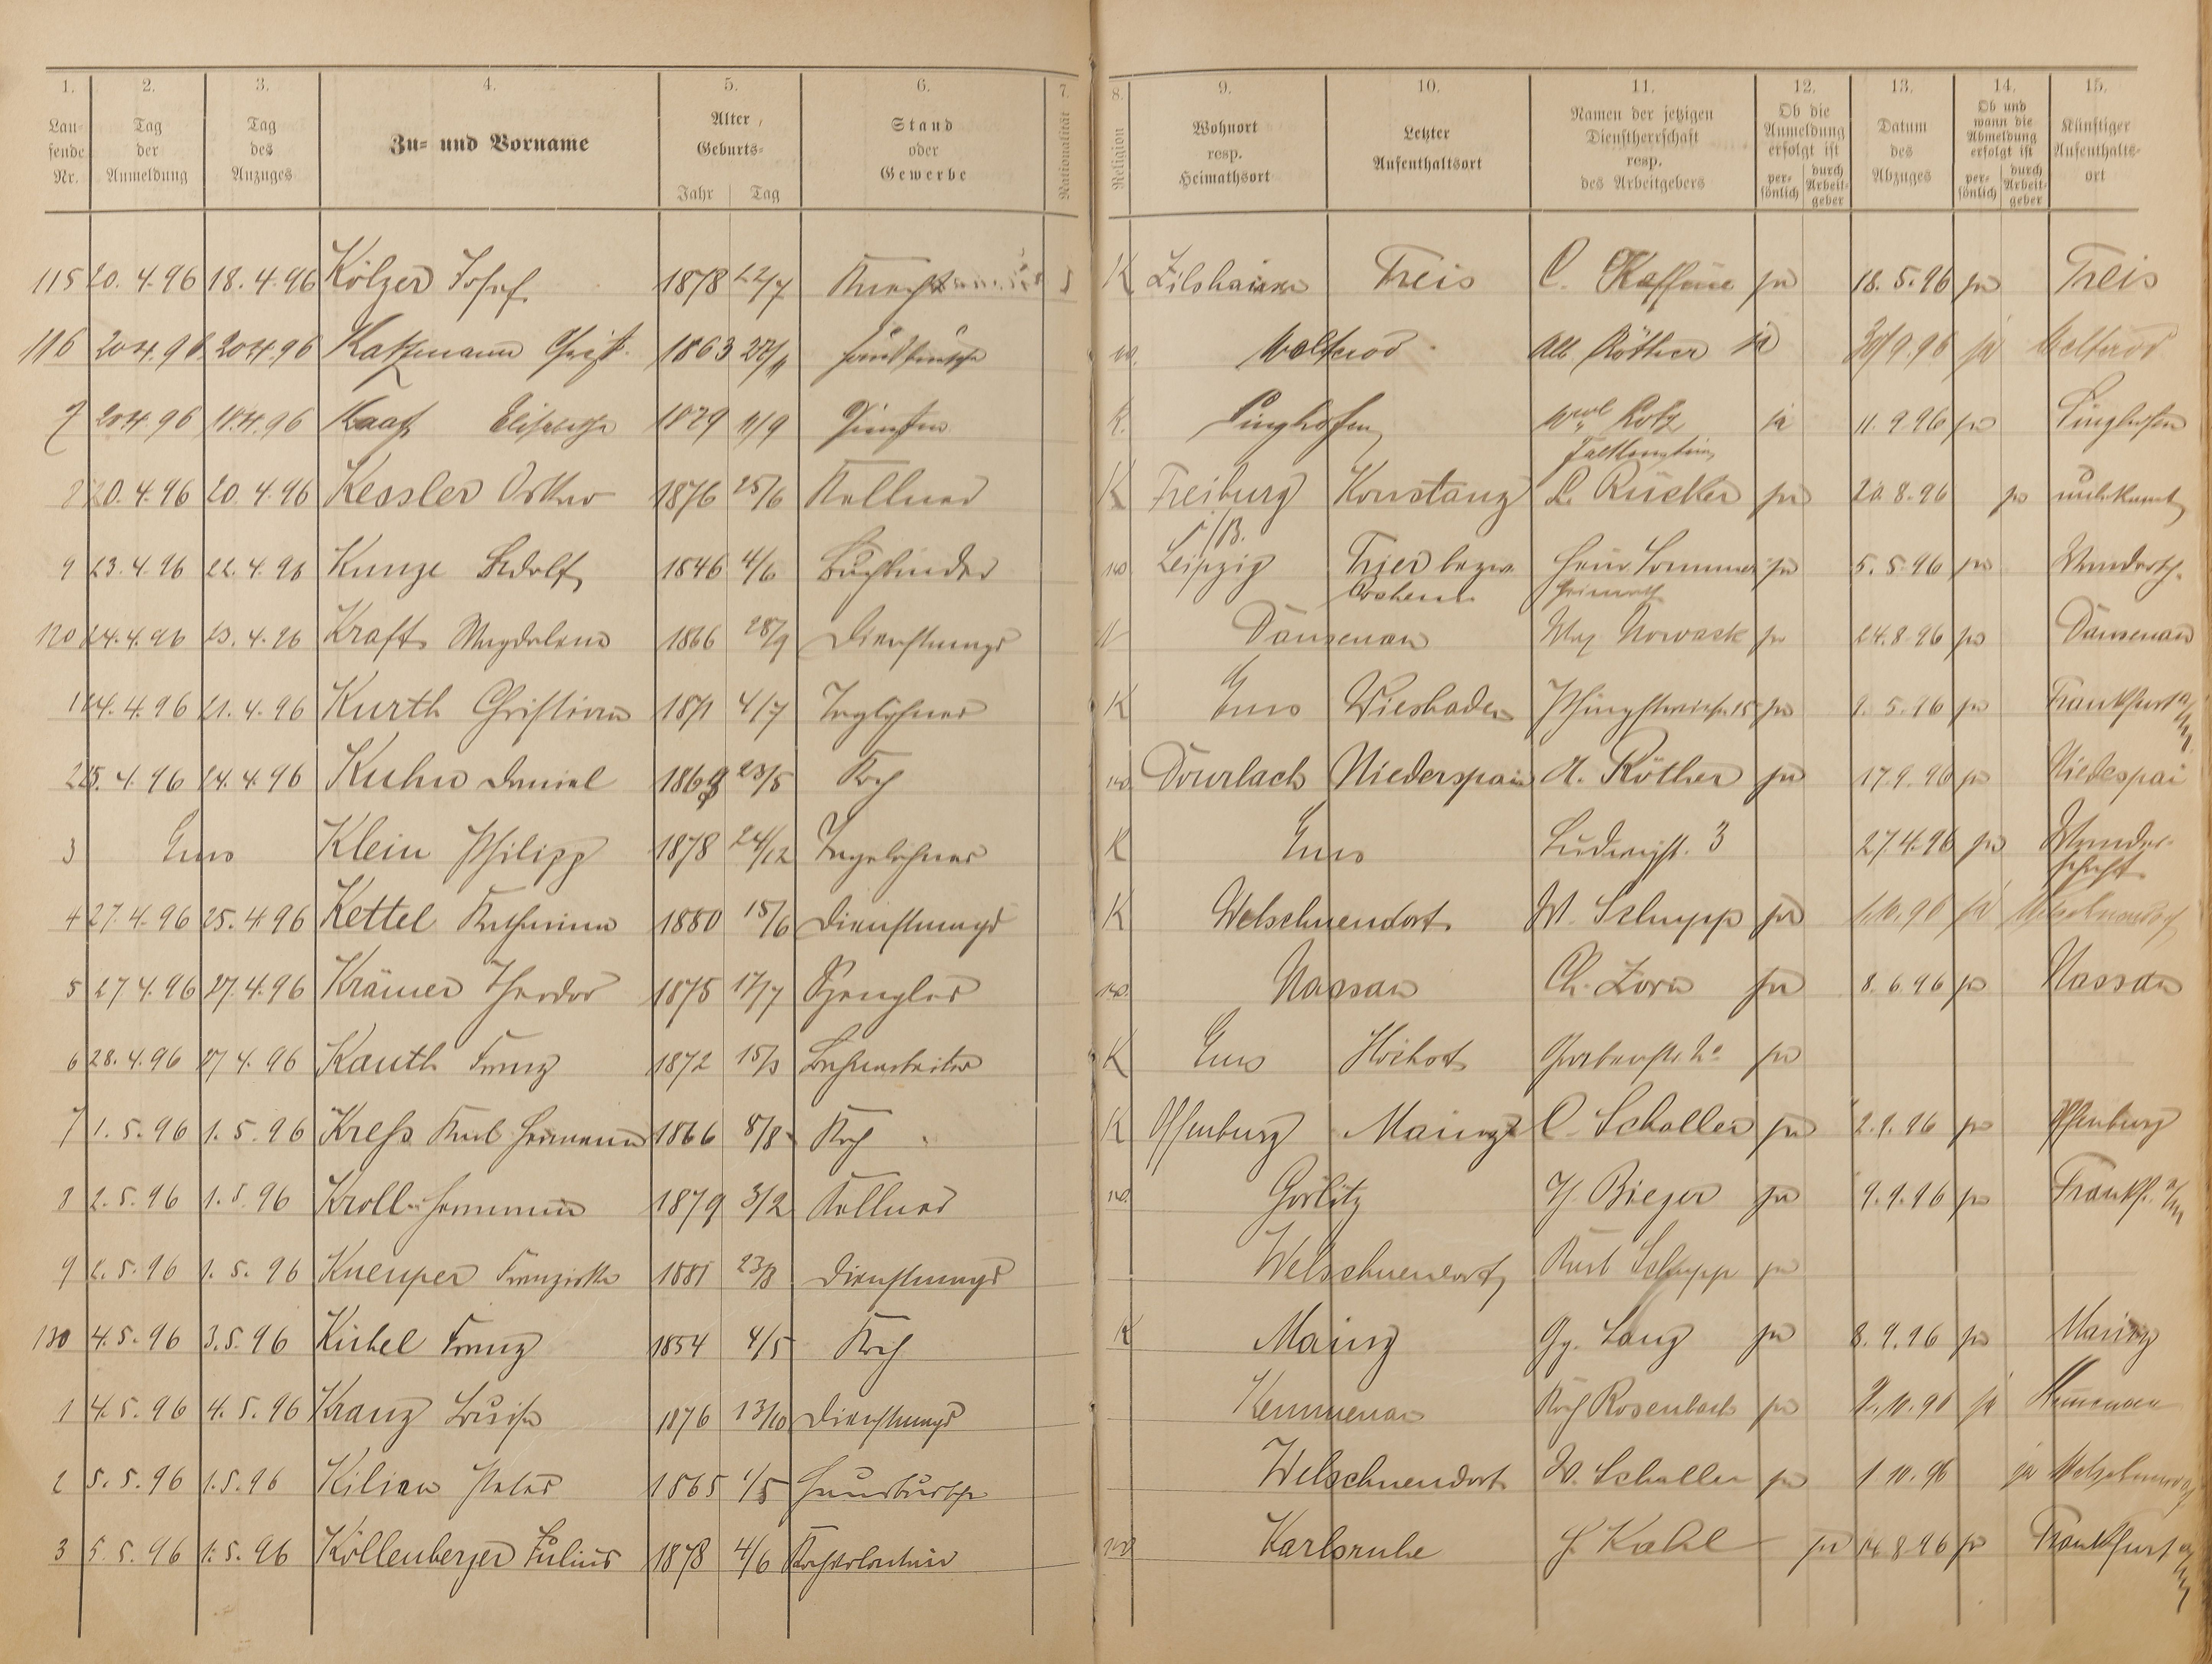 1. 2. 3. 4. 5. 6. 7. 8. 9. 10. 11. 12. 13. 14. 15.
Lau-
fende
Nr.
Tag
der
Anmeldung
Tag
des
Anzuges
Zu- und Vorname
Alter,
Geburts-
Jahr Tag
Stand
oder
Gewerbe
Nationalität
Religion
Wohnort
resp.
Heimathsort
Letzter
Aufenthaltsort
Namen der jetzigen
Dienstherrschaft
resp.
des Arbeitgebers
Ob die
Anmeldung
erfolgt ist
per-
sönlich
durch
Arbeit-
geber
Datum
des
Abzuges
Ob und
wann die
Abmeldung
erfolgt ist
per-
sönlich
durch
Arbeit-
geber
Künftiger
Aufenthalts-
ort
115 20. 4. 96 18. 4. 96 Kölzer Josef 1878 22/7 K Treis C. ja 18. 5. 96 ja Treis
116 20 4. 96 20 4. 96 Katzmann Christ. 1863 Welterod Alb Röther ja 30/9. 96 ja Welterod
7 20 4 96 18 4. 96 Kaaf Elisabetha 1879 11/9 K. Singhofen ja 11. 9. 96 ja Singhofen
20. 4. 96 20. 4. 96 Kessler Oskar 1876 25/6 Kellner K Freiburg Konstanz L. Rücker ja 20. 8. 96 ja unbekannt
i/B.
9 23. 4. 96 22. 4. 96 Kunze Adolf 1846 4/6 Buchbinder Leipzig Trier bezw. Heinr. Sommer ja 5. 5. 96 ja Wandersch.
120 24. 4. 96 23. 4. 96 Kraft Magdalena 1866 28/9 Dienstmagd Dausenau Max Nowack ja 24. 8. 96 ja Dausenau
1 24. 4. 96 21. 4. 96 Kurth Christian 1871 4/7 Taglöhner K Ems Wiesbaden ja 9. 5. 96 ja Frankfurt a/M
2 25. 4. 96 24. 4. 96 Kuhn Daniel 23/5 Koch Dourlach Niederspai A. Röther ja 17. 9. 96 ja Niedespai
3 Ems Klein Philipp 1878 24/12 Tagelöhner K Ems Ludwigst. 3 27 4. 96 ja Wander-
schaft
4 27. 4. 96 25. 4 96 Kettel Katharina 1880 15/6 Dienstmagd K Welschneudorf W. Schupp ja 1. 10. 96 ja Welschneudorf
5 27 4. 96 27. 4. 96 Krämer Theodor 1875 17/7 Spengler Nassau Ch. Zorn ja 8. 6. 96 ja Nassau
6 28. 4. 96 27 4. 96 Kauth Franz 1872 15/3 Bahnarbeiter K Ems ja
7 1. 5. 96 1. 5. 96 Kreß Karl Hermann 1866 8/8 Koch K Offenburg Mainz C. Schaller ja 2. 9. 96 ja Offenburg
8 2. 5. 96 1. 5. 96 Kroll Hermann 1879 3/2 Kellner Görlitz H. Bieger ja 9. 9. 96 ja Frankf. a/M
9 2. 5. 96 1. 5. 96 Kneuper Franziska 1881 23/8 Dienstmagd Welschneudorf Karl Schupp ja
130 4. 5. 96 3. 5. 96 Kirbel Franz 1854 4/5 Koch K Mainz Gg. Lang ja 8. 9. 96 ja Mainz
1 4. 5. 96 4. 5. 96 Kranz Louise 1876 13/10 Dienstmagd Kemmenau Rosenbach ja 2. 10. 96 ja Kemmenau
2 5. 5. 96 1. 5. 96 Kilian Peter 1865 1/5 Hausbursche Welschneudorf W. Schaller ja 1. 10. 96 ja Welschneudorf
3 5. 5. 96 1. 5. 96 Köllenberger Julius 1878 4/6 Kochvolontär Karlsruhe H. Kahl ja 14. 8. 96 ja Frankfurt a/M